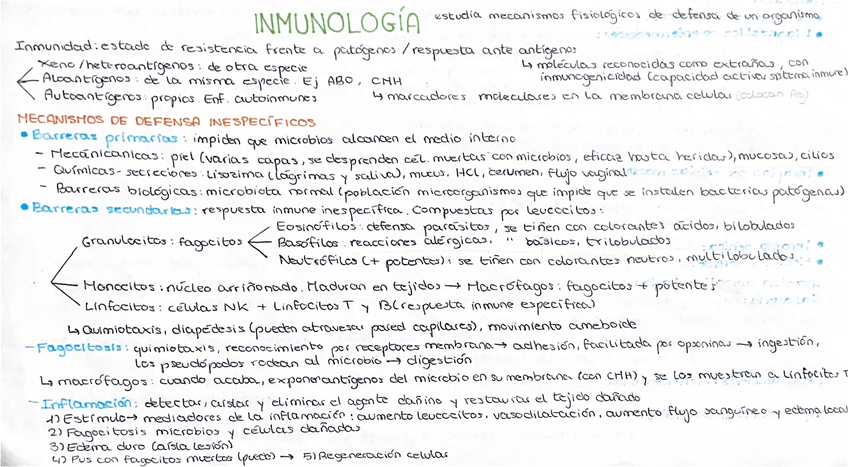 INMUNOLOGÍA estudia mecanismos fisiológicos de defensa de un organismo
Inmunidad: estado de resistencia frente a patógenos / respuesta ante antígenos
Xeno/heteroantígenos: de otra especie
↳ moléculas reconocidas como extrañas, con inmunogenicidad (capacidad activar sistema inmune)
Aloantígenos: de la misma especie. Ej ABO, CMH
↳ marcadores moleculares en la membrana celular (colocan Ag)
Autoantígenos: propios. Enf. autoinmunes
MECANISMOS DE DEFENSA INESPECÍFICOS
• Barreras primarias: impiden que microbios alcancen el medio interno
- Mecánicanicas: piel (varias capas, se desprenden cél. muertas con microbios, eficaz hasta heridas), mucosas, cilios
- Químicas - secreciones: Lisozima (lágrimas y saliva), mucus, HCl, cerumen, flujo vaginal
- Barreras biológicas: microbiota normal (población microorganismos que impide que se instalen bacterias patógenas)
• Barreras secundarias: respuesta inmune inespecífica. Compuestas por leucocitos:
Eosinófilos: defensa parásitos, se tiñen con colorantes ácidos, bilobulados
Granulocitos: fagocitos Basófilos: reacciones alérgicas, " básicos, trilobulados
Neutrófilos (+ potentes): se tiñen con colorantes neutros, multilobulados
Monocitos: núcleo arriñonado. Maduran en tejidos → Macrófagos: fagocitos + potentes
Linfocitos: células NK + Linfocitos T y B (respuesta inmune específica)
↳ Quimiotaxis, diapédesis (pueden atravesar pared capilares), movimiento ameboide
- Fagocitosis: quimiotaxis, reconocimiento por receptores membrana → adhesión, facilitada por opsonina → ingestión,
los pseudópodos rodean al microbio → digestión
↳ macrófagos: cuando acaba, exponen antígenos del microbio en su membrana (con CMH) y se los muestran a linfocitos T
- Inflamación: detectar, aislar y eliminar el agente dañino y restaurar el tejido dañado
1) Estímulo → mediadores de la inflamación: aumento leucocitos, vasodilatación, aumento flujo sanguíneo y edema local
2) Fagocitosis microbios y células dañadas
3) Edema duro (aísla lesión)
4) Pus con fagocitos muertos (puede) → 5) Regeneración celular